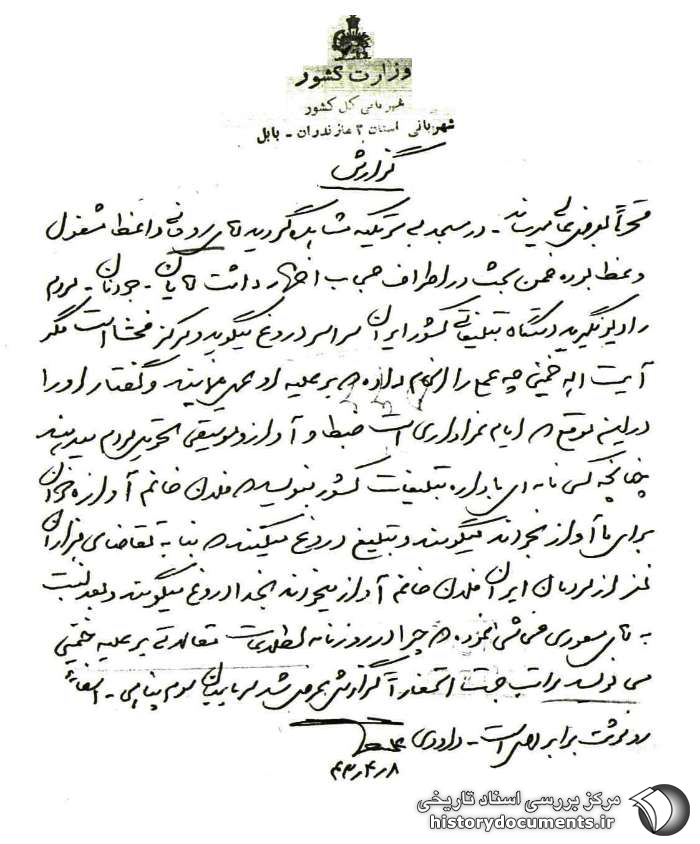 وزارت کشور
شهربانی کل کشور
شهربانی استان ۲ مازندران - بابل
گزارش
محترماً بعرض عالی میرساند - در مسجد تکیه مشاهده گردید آقای روحانی واعظ مشغول
وعظ بوده ضمن بحث در اطراف حجاب اظهار داشت آقایان - جوانان - مردم
رادیو نگیرید دستگاه تبلیغاتی کشور ایران سراسر دروغ میگوید و مرکز فحشا است مگر
آیت اله خمینی چه عمل را انجام داده که بر علیه او عمل مینمایند و گفتار او را
در این موقع که ایام عزاداری است ضبط و آواز و موسیقی تحویل مردم میدهند
چنانچه کسی نامه ای باداره تبلیغات کشور بنویسد که فلان خانم آوازه خوان
برای ما آواز بخواند میگویند و تبلیغ دروغ میکنند که بنا به تقاضای هزاران
نفر از مردمان ایران فلان خانم آواز میخواند بخدا دروغ میگویند و بعد نسبت
به آقای مسعودی فحاشی نموده که چرا در روزنامه اطلاعات مقالاتی بر علیه خمینی
می نویسد مراتب جهت استحضار گزارش بعرض شد سرپاسبان سوم - امضاء
رونوشت برابر اصل است - داودی
۴۳٫۴٫۸
مرکز بررسی اسناد تاریخی
historydocuments.ir